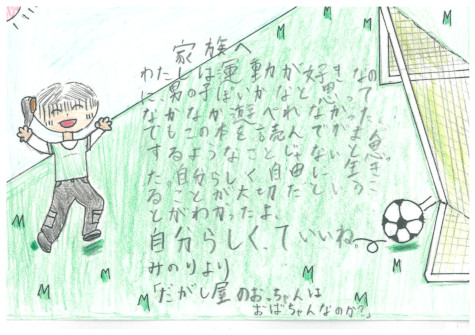 家族へ
わたしは運動が好きなの
に、男の子ぽいかなと思って
なかなか遊べれなかった。
でもこの本を読んでがまん
するようなことじゃないと思っ
た。自分らしく自由に生き
ることが大切だというこ
とがわかったよ。
自分らしく、ていいね。
みのりより
「だがし屋のおっちゃんは
おばちゃんなのか?」